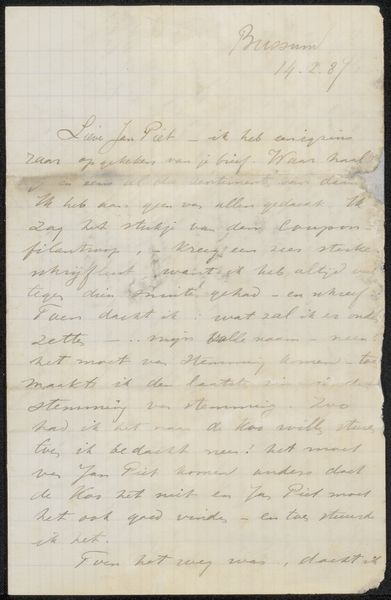 Bussum
14.2.87
Lieve Jan Piet – ik heb eenigzins
raar opgekeken van je brief. Waar haal
je in eens al die sentiment van daan
Ik heb aan geen van allen gedacht. Ik
zag het stukje van den Coupon-
filantroop, – kreeg een zeer sterke
schrijflust want ik heb altijd wat
tegen dien gehad – en schreef
Toen dacht ik: wat zal ik er onder
zetten – ... mijn volle naam – neen
het moet van Stemming komen – toen
maakte ik de laatste
stemming van stemming. Zoo
had ik het naar de Koo willen sturen
toen ik bedacht neen! het moet
van Jan Piet komen anders doet
de Koo het niet en Jan Piet moet
het ook goed vinden – en toen stuurde
ik het.
Toen het weg was, dacht ik